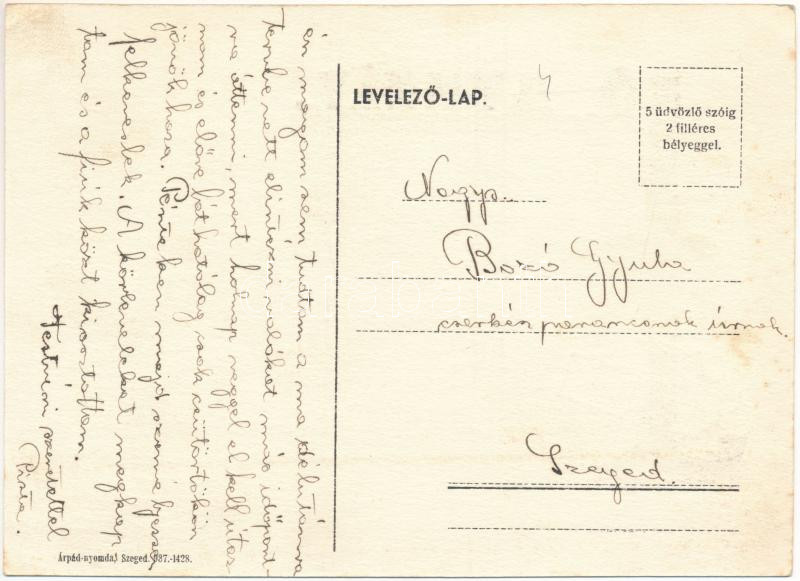 LEVELEZŐ-LAP.
5 üdvözlő szóig
2 filléres
bélyeggel.
Nagys.
Bozó Gyula
cserkész parancsnok úrnak.
Szeged.
én magam sem tudtam a ma délutánra
tervbe vett elintézni valókat más időpont-
ra áttenni, mert holnap reggel el kell utaz-
nom és előre láthatólag csak csütörtökön
jövök haza. Pénteken majd személyesen
felkereslek. A körleveleket megkap-
tam és a fiúk közt kiosztottam.
Testvéri szeretettel
Pista.
Árpád-nyomda, Szeged. 937.-1428.